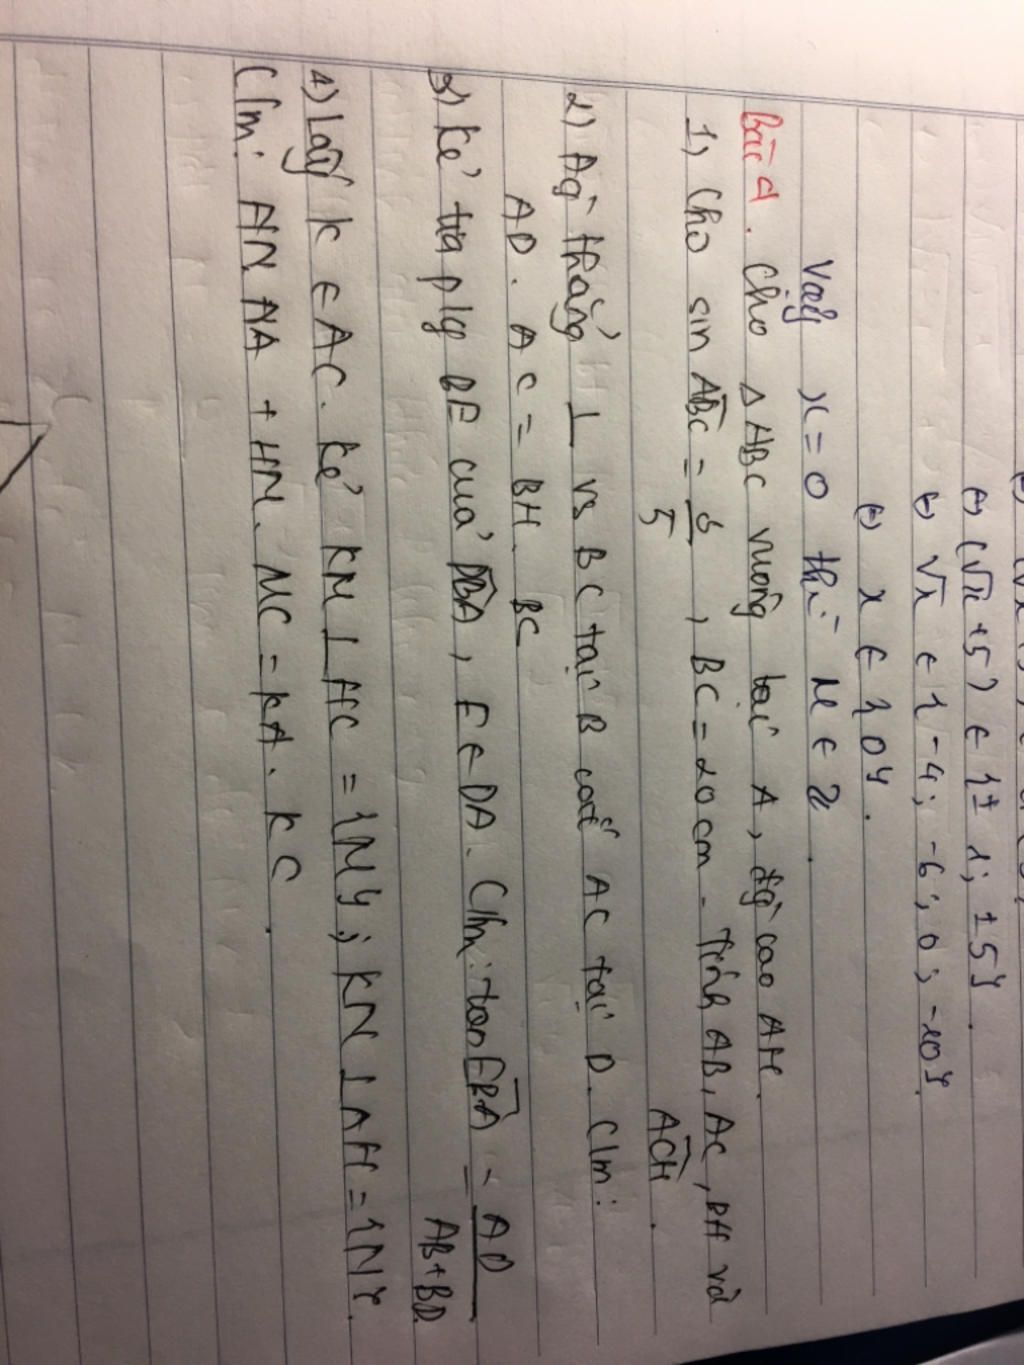 (√x+5) ∈ {± 1; ±5}
(=) √x ∈ {-4; -6; 0; -10}
(=) x ∈ {0}.
Vậy x=0 thì M ∈ Z.
Bài 4. Cho △ABC vuông tại A, đg` cao AH.
1) Cho sin ABC = 3/5, BC=20cm. Tính AB, AC, BH và
ACH.
2) Đg` thẳng ⊥ vs BC tại B cắt AC tại D. C/m:
AD. AC = BH. BC
3) Kẻ tia p/g BE của DBA, E∈DA. C/m: tan EBA = AD/AB+BD
4) Lấy K ∈ AC. Kẻ KM ⊥ HC = {M}; KN ⊥ AH = {N}.
C/m: HN. NA + HM. MC = KA. KC.